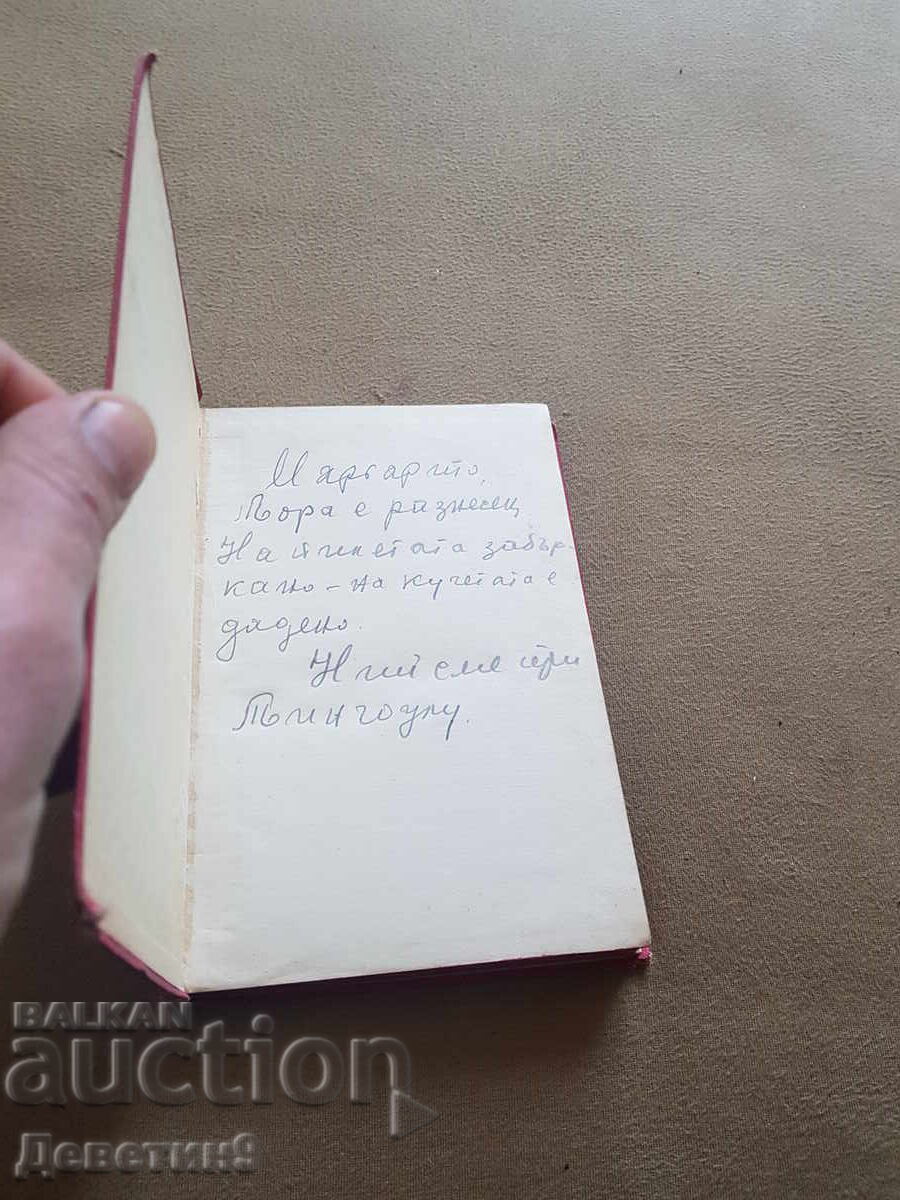 Маргарито,
Тора е разнесен
На пилетата забър-
кано - на кучетата е
дадено.
Ний сме при
BALKAN
auction
Деветин9